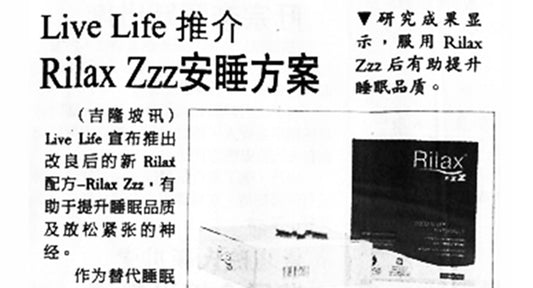 Live Life 推介
Rilax Zzz安睡方案
▼研究成果显
示，服用 Rilax
Zzz 后有助提升
睡眠品质。
（吉隆坡讯）
Live Life 宣布推出
改良后的新 Rilax
配方–Rilax Zzz，有
助于提升睡眠品质
及放松紧张的神
经。
作为替代睡眠
Rilax
zzz